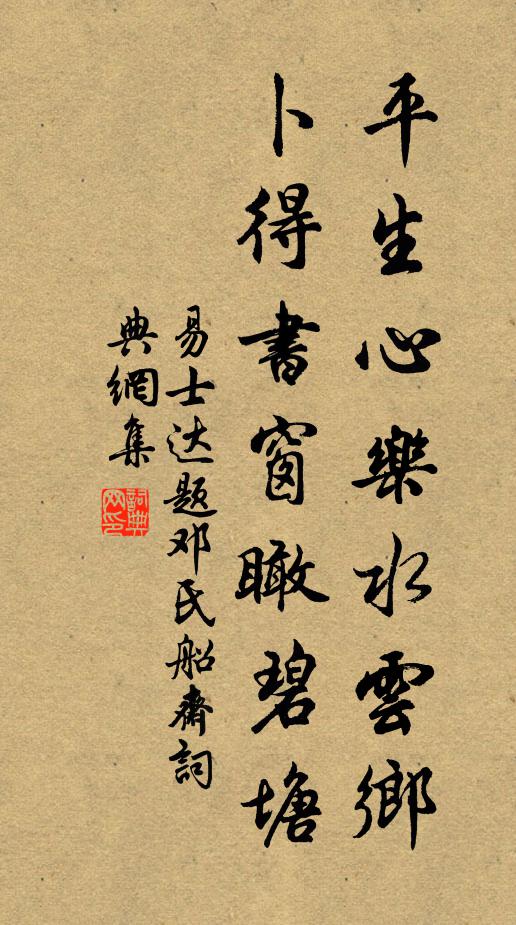 平生心樂水雲鄉
卜得書窗瞰碧塘
易士达題邓氏船齋詞
典網集
詞典網印